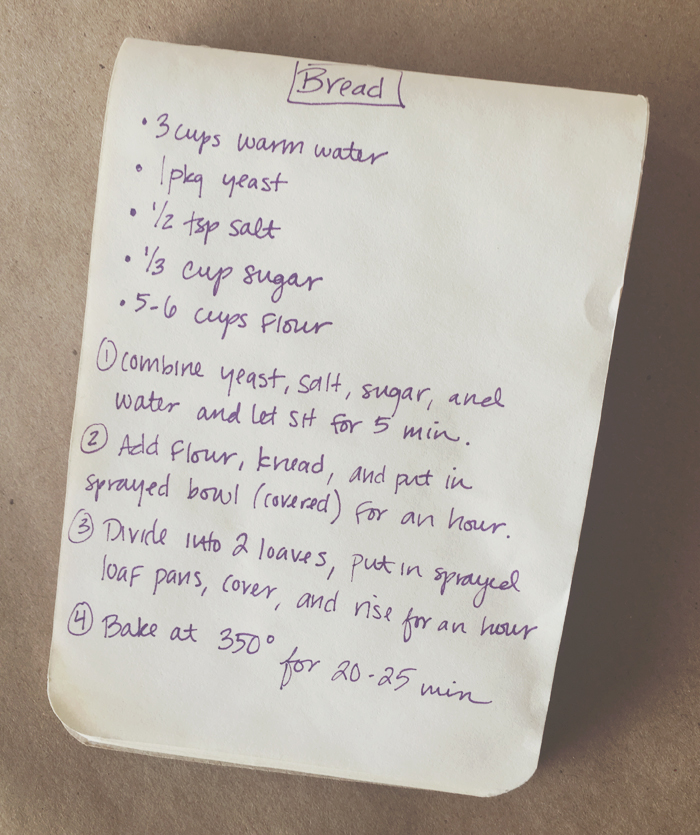 Bread
• 3 cups warm water
• 1 pkg yeast
• 1/2 tsp salt
• 1/3 cup sugar
• 5-6 cups flour
① combine yeast, salt, sugar, and
water and let sit for 5 min.
② Add flour, knead, and put in
sprayed bowl (covered) for an hour.
③ Divide into 2 loaves, put in sprayed
loaf pans, cover, and rise for an hour
④ Bake at 350°
for 20-25 min